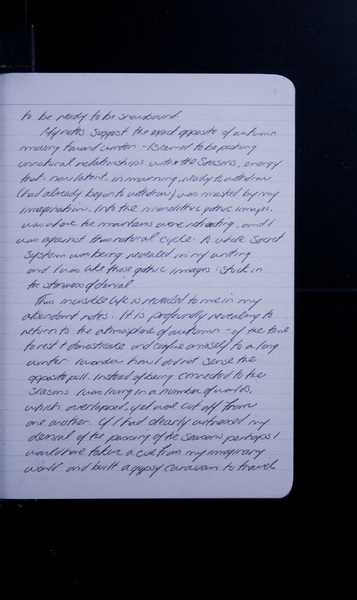 to be ready to be snowbound.
My notes suggest the exact opposite of autumn
moving toward winter - I seemed to be pushing
unnatural relationships with the seasons, energy
that - now latent, in mourning, ready to withdraw
(had already begun to withdraw) was masked by my
imagination. Into the monolithic gothic images.
was where the mountains were retreating, and I
was against this natural cycle. A whole secret
system was being revealed in my writing
and I was like those gothic images: stuck in
the of denial.
This invisible life is revealed to me in my
abundant notes. It is profoundly revealing to
return to the atmosphere of autumn - of the time
to rest & domesticate and confine oneself to a long
winter. I wonder how I did not sense the
opposite pull. Instead of being connected to the
seasons I was living in a number of worlds,
which overlapped, yet were cut off from
one another. If I had clearly witnessed my
denial of the passing of the seasons perhaps I
would have taken a cue from my imaginary
world and built a gypsy caravan to travel